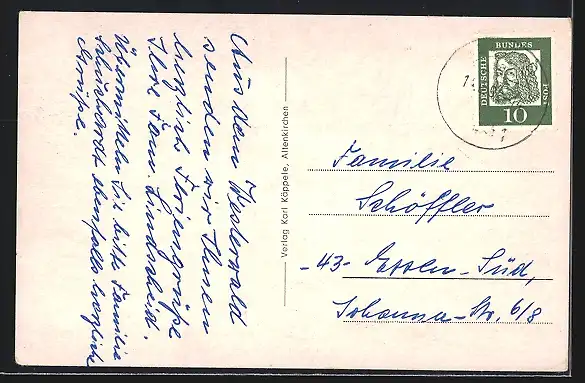 Aus dem Westerwald
senden wir Ihnen
herzlich Feriengrüße
Ihre Fam. Lindscheid.
Übermitteln Sie bitte Familie
ebenfalls herzliche
Grüße.
Verlag Karl Käppele, Altenkirchen
DEUTSCHE
BUNDES
POST
10
Familie
Schöffler
-43- Essen-Süd,
Johanna-Str. 6/8